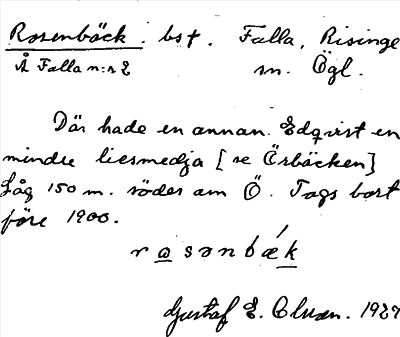 Rosenbäck. bst. Falla, Risinge
Å Falla n:r 2 sn. Ögl.
Där hade en annan Edqvist en
mindre liesmedja [se Örbäcken]
Låg 150 m. söder om Ö. Togs bort
före 1900.
rosənbǽk
Gustaf E. 1927